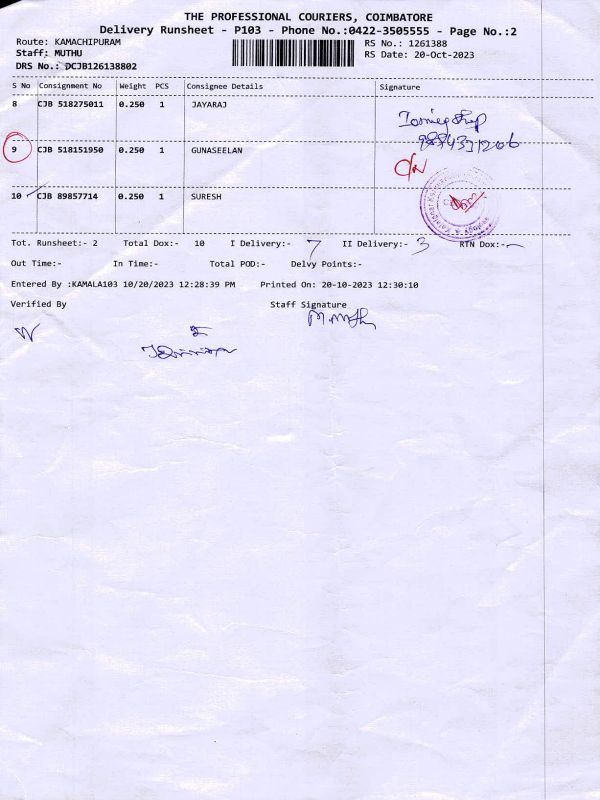 THE PROFESSIONAL COURIERS, COIMBATORE
Delivery Runsheet - P103 - Phone No.:0422-3505555 - Page No.:2
Route: KAMACHIPURAM RS No.: 1261388
Staff: MUTHU RS Date: 20-Oct-2023
DRS No.: DCJB126138802
S No Consignment No Weight PCS Consignee Details Signature
8 CJB 518275011 0.250 1 JAYARAJ
9 CJB 518151950 0.250 1 GUNASEELAN
10 CJB 89857714 0.250 1 SURESH
Tot. Runsheet:- 2 Total Dox:- 10 I Delivery:- 7 II Delivery:- 3 RTN Dox:-
Out Time:- In Time:- Total POD:- Delvy Points:-
Entered By :KAMALA103 10/20/2023 12:28:39 PM Printed On: 20-10-2023 12:30:10
Verified By Staff Signature